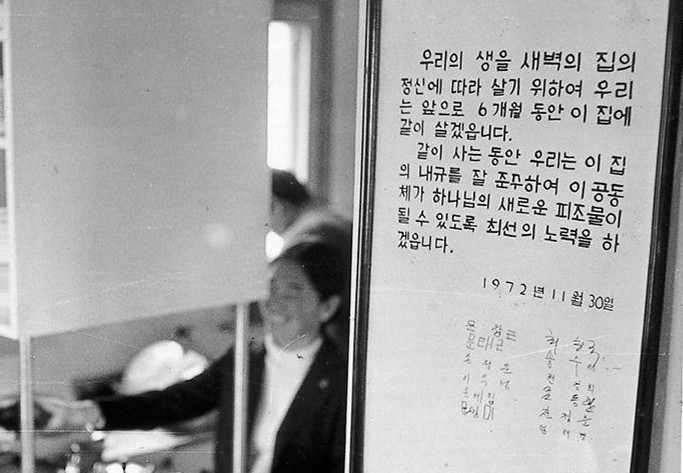 우리의 생을 새벽의 집의
정신에 따라 살기 위하여 우리
는 앞으로 6개월 동안 이 집에
같이 살겠읍니다.
같이 사는 동안 우리는 이 집
의 내규를 잘 준꾸하여 이 공동
체가 하나님의 새로운 피조물이
될 수 있도록 최선의 노력을 하
겠읍니다.
1972년 11월 30일
문 창근
문태근